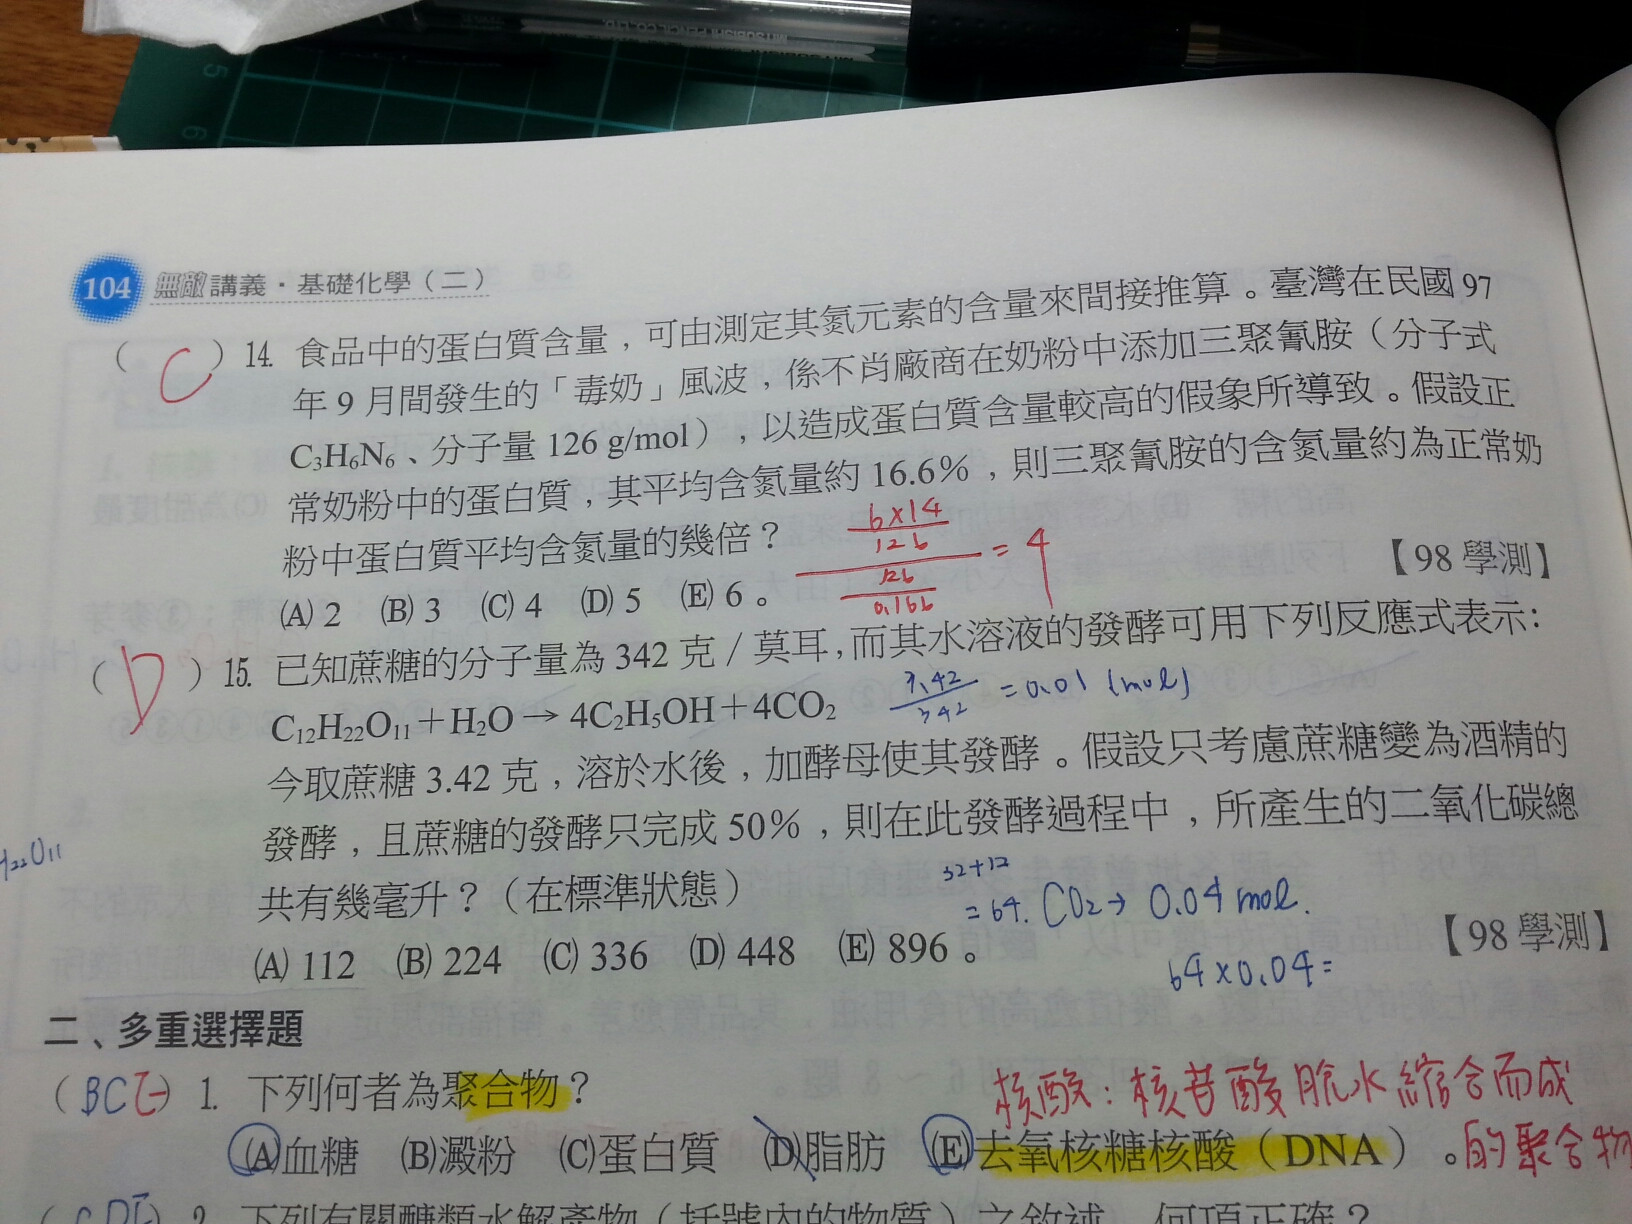 104 無敵講義・基礎化學（二）
（ C ）14. 食品中的蛋白質含量，可由測定其氮元素的含量來間接推算。臺灣在民國 97
年 9 月間發生的「毒奶」風波，係不肖廠商在奶粉中添加三聚氰胺（分子式
C₃H₆N₆、分子量 126 g/mol），以造成蛋白質含量較高的假象所導致。假設正
常奶粉中的蛋白質，其平均含氮量約 16.6%，則三聚氰胺的含氮量約為正常奶
粉中蛋白質平均含氮量的幾倍？
6×14
126
= 4
126
0.166
【98 學測】
(A) 2 (B) 3 (C) 4 (D) 5 (E) 6。
（ D ）15. 已知蔗糖的分子量為 342 克／莫耳，而其水溶液的發酵可用下列反應式表示：
C₁₂H₂₂O₁₁＋H₂O→ 4C₂H₅OH＋4CO₂
3.42
342
= 0.01 (mol)
今取蔗糖 3.42 克，溶於水後，加酵母使其發酵。假設只考慮蔗糖變為酒精的
發酵，且蔗糖的發酵只完成 50%，則在此發酵過程中，所產生的二氧化碳總
H₂₂O₁₁
共有幾毫升？（在標準狀態）
32+12
= 64. CO₂→ 0.04 mol.
【98 學測】
(A) 112 (B) 224 (C) 336 (D) 448 (E) 896。
64×0.04=
二、多重選擇題
（BCE）1. 下列何者為聚合物？
核酸：核苷酸脫水縮合而成
(A)血糖 (B)澱粉 (C)蛋白質 (D)脂肪 (E)去氧核糖核酸（DNA）。
的聚合物
（CDE）2. 下列有關醣類水解產物（括號內的物質）之敘述，何項正確？